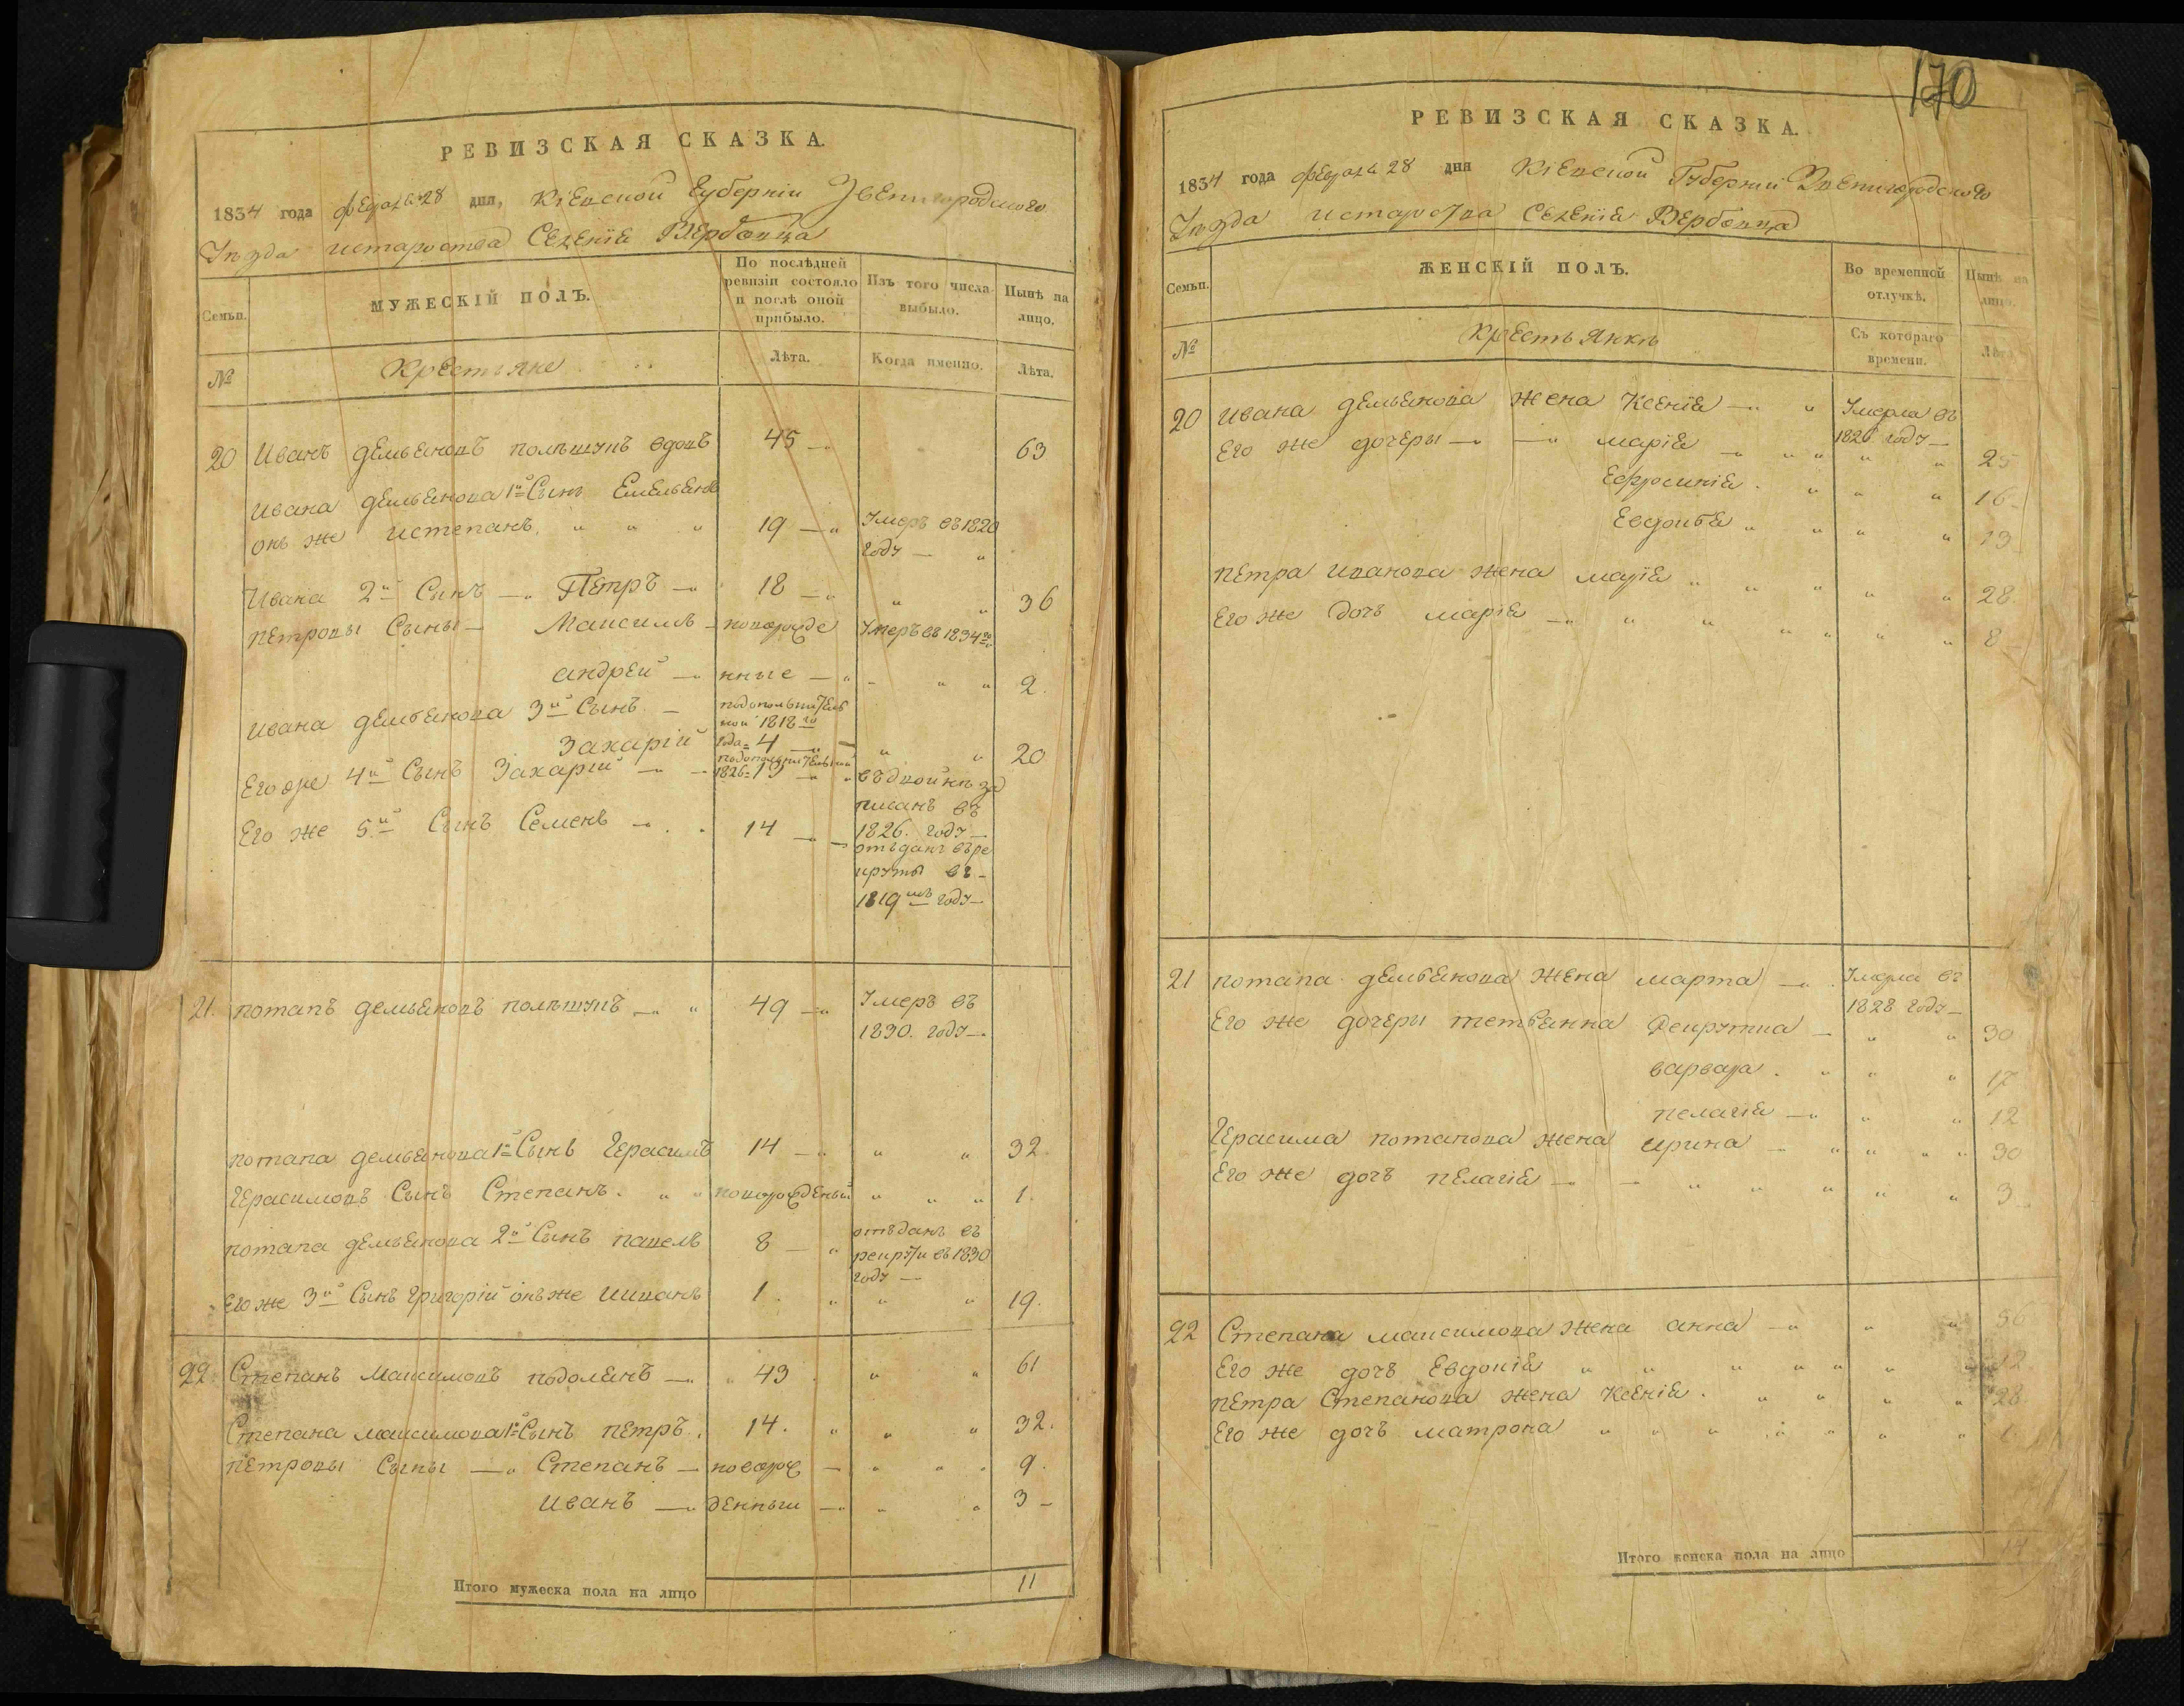 РЕВИЗСКАЯ СКАЗКА.
1834 года февраля 28 дня, Кіевской Губерніи Звенигородского
Уезда староства Селеніе Вербовца
Семьи. МУЖЕСКІЙ ПОЛЪ. По послѣдней ревизіи состояло и послѣ оной прибыло. Изъ того числа выбыло. Нынѣ на лицо.
№ Крестьяне Лѣта. Когда именно. Лѣта.
20 Иванъ демьяновъ полѣшукъ вдовъ 45 63
Ивана демьянова 1й Сынъ Емельянъ
онъ же Степанъ 19 Умеръ въ 1820
году
Ивана 2й Сынъ Петръ 18 36
петровы Сыны Максимъ новорожде Умеръ въ 1834го
андрей нные 2.
Ивана демьянова 3й Сынъ подополнитель
ной 1818го
Захарій года 4 20
Его же 4й Сынъ Захарій подополнительной
1826 13 въдвойнѣ за
писанъ въ
Его же 5й Сынъ Семенъ 14 1826. году
отъданъ въ ре
круты въ
1819мъ году
21. потапъ демьяновъ полѣшукъ 49 Умеръ въ
1830. году
потапа демьянова 1й Сынъ Герасимъ 14 32.
Герасимовъ Сынъ Степанъ. новорожденый 1.
потапа демьянова 2й Сынъ павелъ 8 отъданъ въ
рекруты въ 1830
году
Его же 3й Сынъ Григорій онъ же Иванъ 1. 19.
22. Степанъ Максимовъ подолянъ 43 61
Степана максимова 1й Сынъ петръ. 14. 32.
петровы Сыны Степанъ новорож 9.
Иванъ денныи 3
Итого мужеска пола на лицо 11
170
РЕВИЗСКАЯ СКАЗКА.
1834 года февраля 28 дня Кіевской Губерніи Звенигородского
Уезда староства Селеніе Вербовца
Семьи. ЖЕНСКІЙ ПОЛЪ. Во временной отлучкѣ. Нынѣ на лицо.
№ Крестьянкѣ Съ котораго времени. Лѣта.
20 Ивана демьянова жена Ксеніе Умерла въ
1826 году
Его же дочеры маріе 25
Ефросиніе. 16
Евдокіе 13
петра Иванова жена маріе 28.
Его же дочъ маріе 8
21 потапа демьянова жена марта Умерла въ
1828 году
Его же дочеры рекрутка 30
варвара. 17
пелагіе 12
Герасима потапова жена ирина 30
Его же дочъ пелагіе 3
22 Степана максимова жена анна 56
Его же дочъ Евдокіе 12
петра Степанова жена Ксеніе. 28
Его же дочъ матрона 1.
Итого женска пола на лицо 14